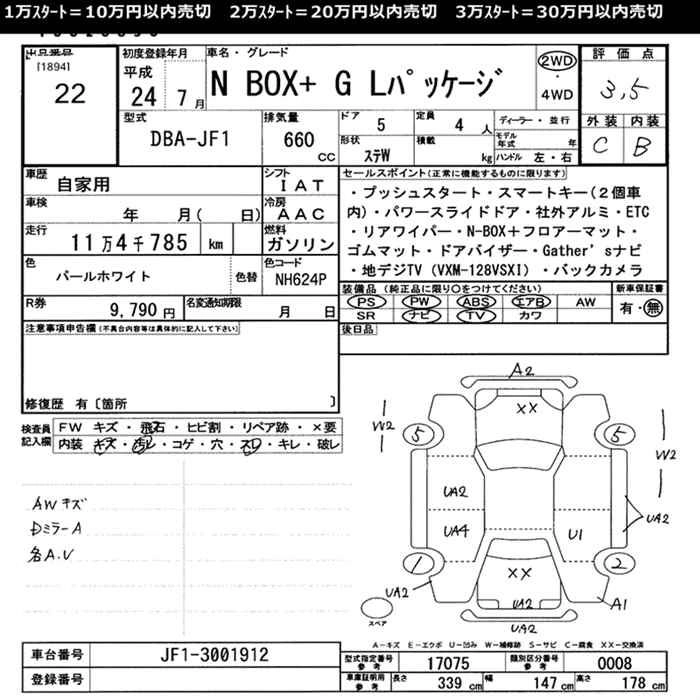 1万ｽﾀｰﾄ＝10万円以内売切　2万ｽﾀｰﾄ＝20万円以内売切　3万ｽﾀｰﾄ＝30万円以内売切
[1894]
22
初度登録年月
平成
24 7月
車名・グレード
N BOX+ G Lﾊﾟｯｹｰｼﾞ
2WD
・
4WD
評価点
3,5
外装 内装
C B
型式
DBA-JF1
排気量
660 CC
ドア 5
定員 4 人
形状 ｽﾃW
積載 kg
ディーラー・並行
モデル年式 年
ハンドル 左・右
車歴
自家用
シフト
IAT
車検
年 月( 日)
冷房
AAC
走行
11万4千785 km
燃料
ガソリン
色
パールホワイト
色替
色コード
NH624P
R券
9,790円
名変通知期限
月 日
セールスポイント(正常に機能するものに限ります)
・プッシュスタート・スマートキー(２個車
内)・パワースライドドア・社外アルミ・ETC
・リアワイパー・N-BOX＋フロアーマット・
ゴムマット・ドアバイザー・Gather'sナビ
・地デジTV (VXM-128VSXI)・バックカメラ
装備品 (純正品に限り○をつけてください)
新車保証書
PS PW ABS エアB AW
有・無
SR ナビ TV カワ
後日品
注意事項申告欄(不具合内容等は具体的に記入して下さい)
修復歴 有〔箇所 〕
検査員
記入欄
FW キズ・飛石・ヒビ割・リペア跡・×要
内装 キズ・汚レ・コゲ・穴・スレ・キレ・破レ
AWキズ
DミラーA
各A.V
A2
XX
W2
5
5
W2
UA2
UA4
U1
UA2
1
2
XX
UA2
UA2
A1
UA2
スペア
A－キズ E－エクボ U－凹み W－補修跡 S－サビ C－腐食 XX－交換済
車台番号
JF1-3001912
登録番号
型式指定番号
参考
17075
類別区分番号
参考
0008
車庫証明用
参考
長さ 339 cm
幅 147 cm
高さ 178 cm